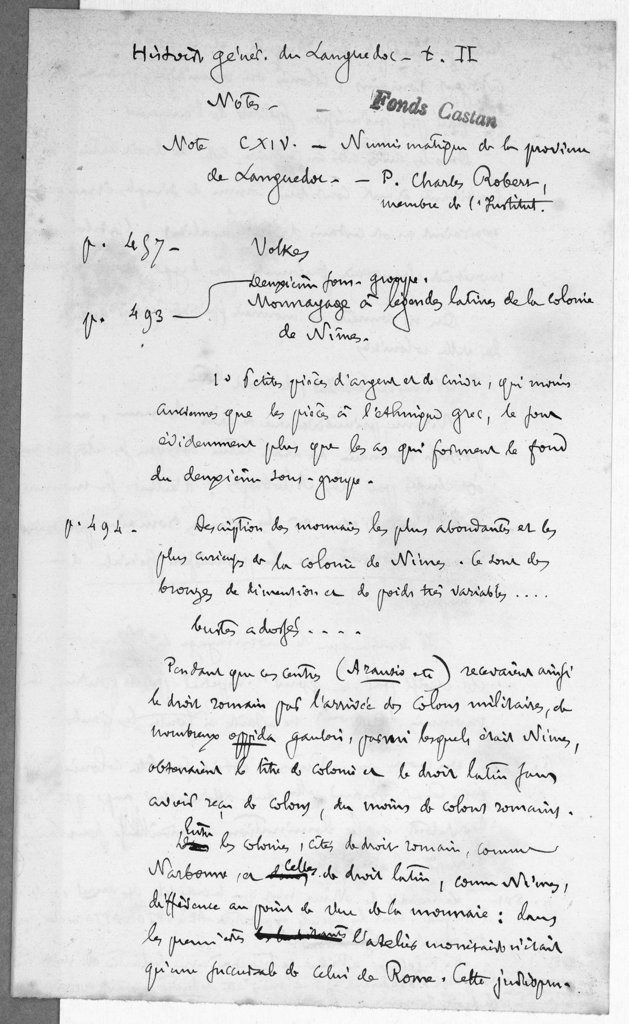 Histoire génér. du Languedoc - t. II
Notes -
Fonds Castan
Note CXIV. - Numismatique de la province
de Languedoc. - P. Charles Robert,
membre de l'Institut.
p. 457 - Volkes
Deuxième sous-groupe.
p. 493 - Monnayage à légendes latines de la colonie
de Nîmes.
1º Petites pièces d'argent et de cuivre, qui moins
anciennes que les pièces à l'ethnique grec, le sont
évidemment plus que les as qui forment le fond
du deuxième sous-groupe.
p. 494 - Description des monnaies les plus abondantes et les
plus curieuses de la colonie de Nîmes. Ce sont des
bronzes de dimension et de poids très variables ....
bustes adossés ....
Pendant que ces centres (Arausio etc) recevaient ainsi
le droit romain par l'arrivée des colons militaires, de
nombreux oppida gaulois, parmi lesquels était Nîmes,
obtenaient le titre de colonie et le droit latin sans
avoir reçu de colons, du moins de colons romains.
Entre les colonies, cités de droit romain, comme
Narbonne, et celles de droit latin, comme Nîmes,
différence au point de vue de la monnaie : dans
les premières l'atelier monétaire n'était
qu'une succursale de celui de Rome. Cette